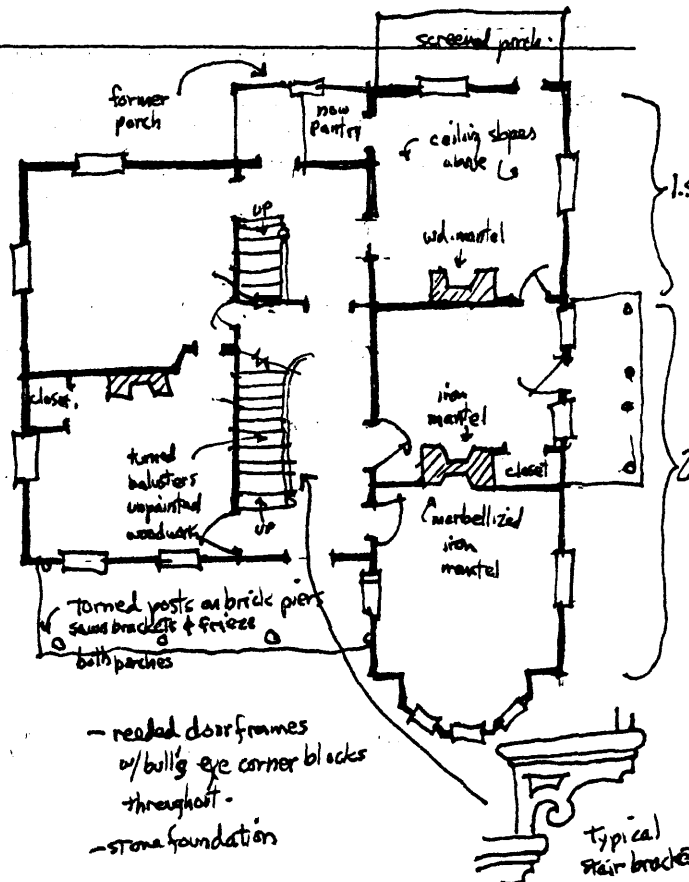 screened porch.
former
porch
now
pantry
ceiling slopes
above
1.5
UP
wd. mantel
closet.
iron
mantel
closet
2
turned
balusters
unpainted
woodwork
UP
marbellized
iron
mantel
turned posts on brick piers
sawn brackets & frieze
both porches
- reeded doorframes
w/bull's eye corner blocks
throughout.
- stone foundation
Typical
stair bracket